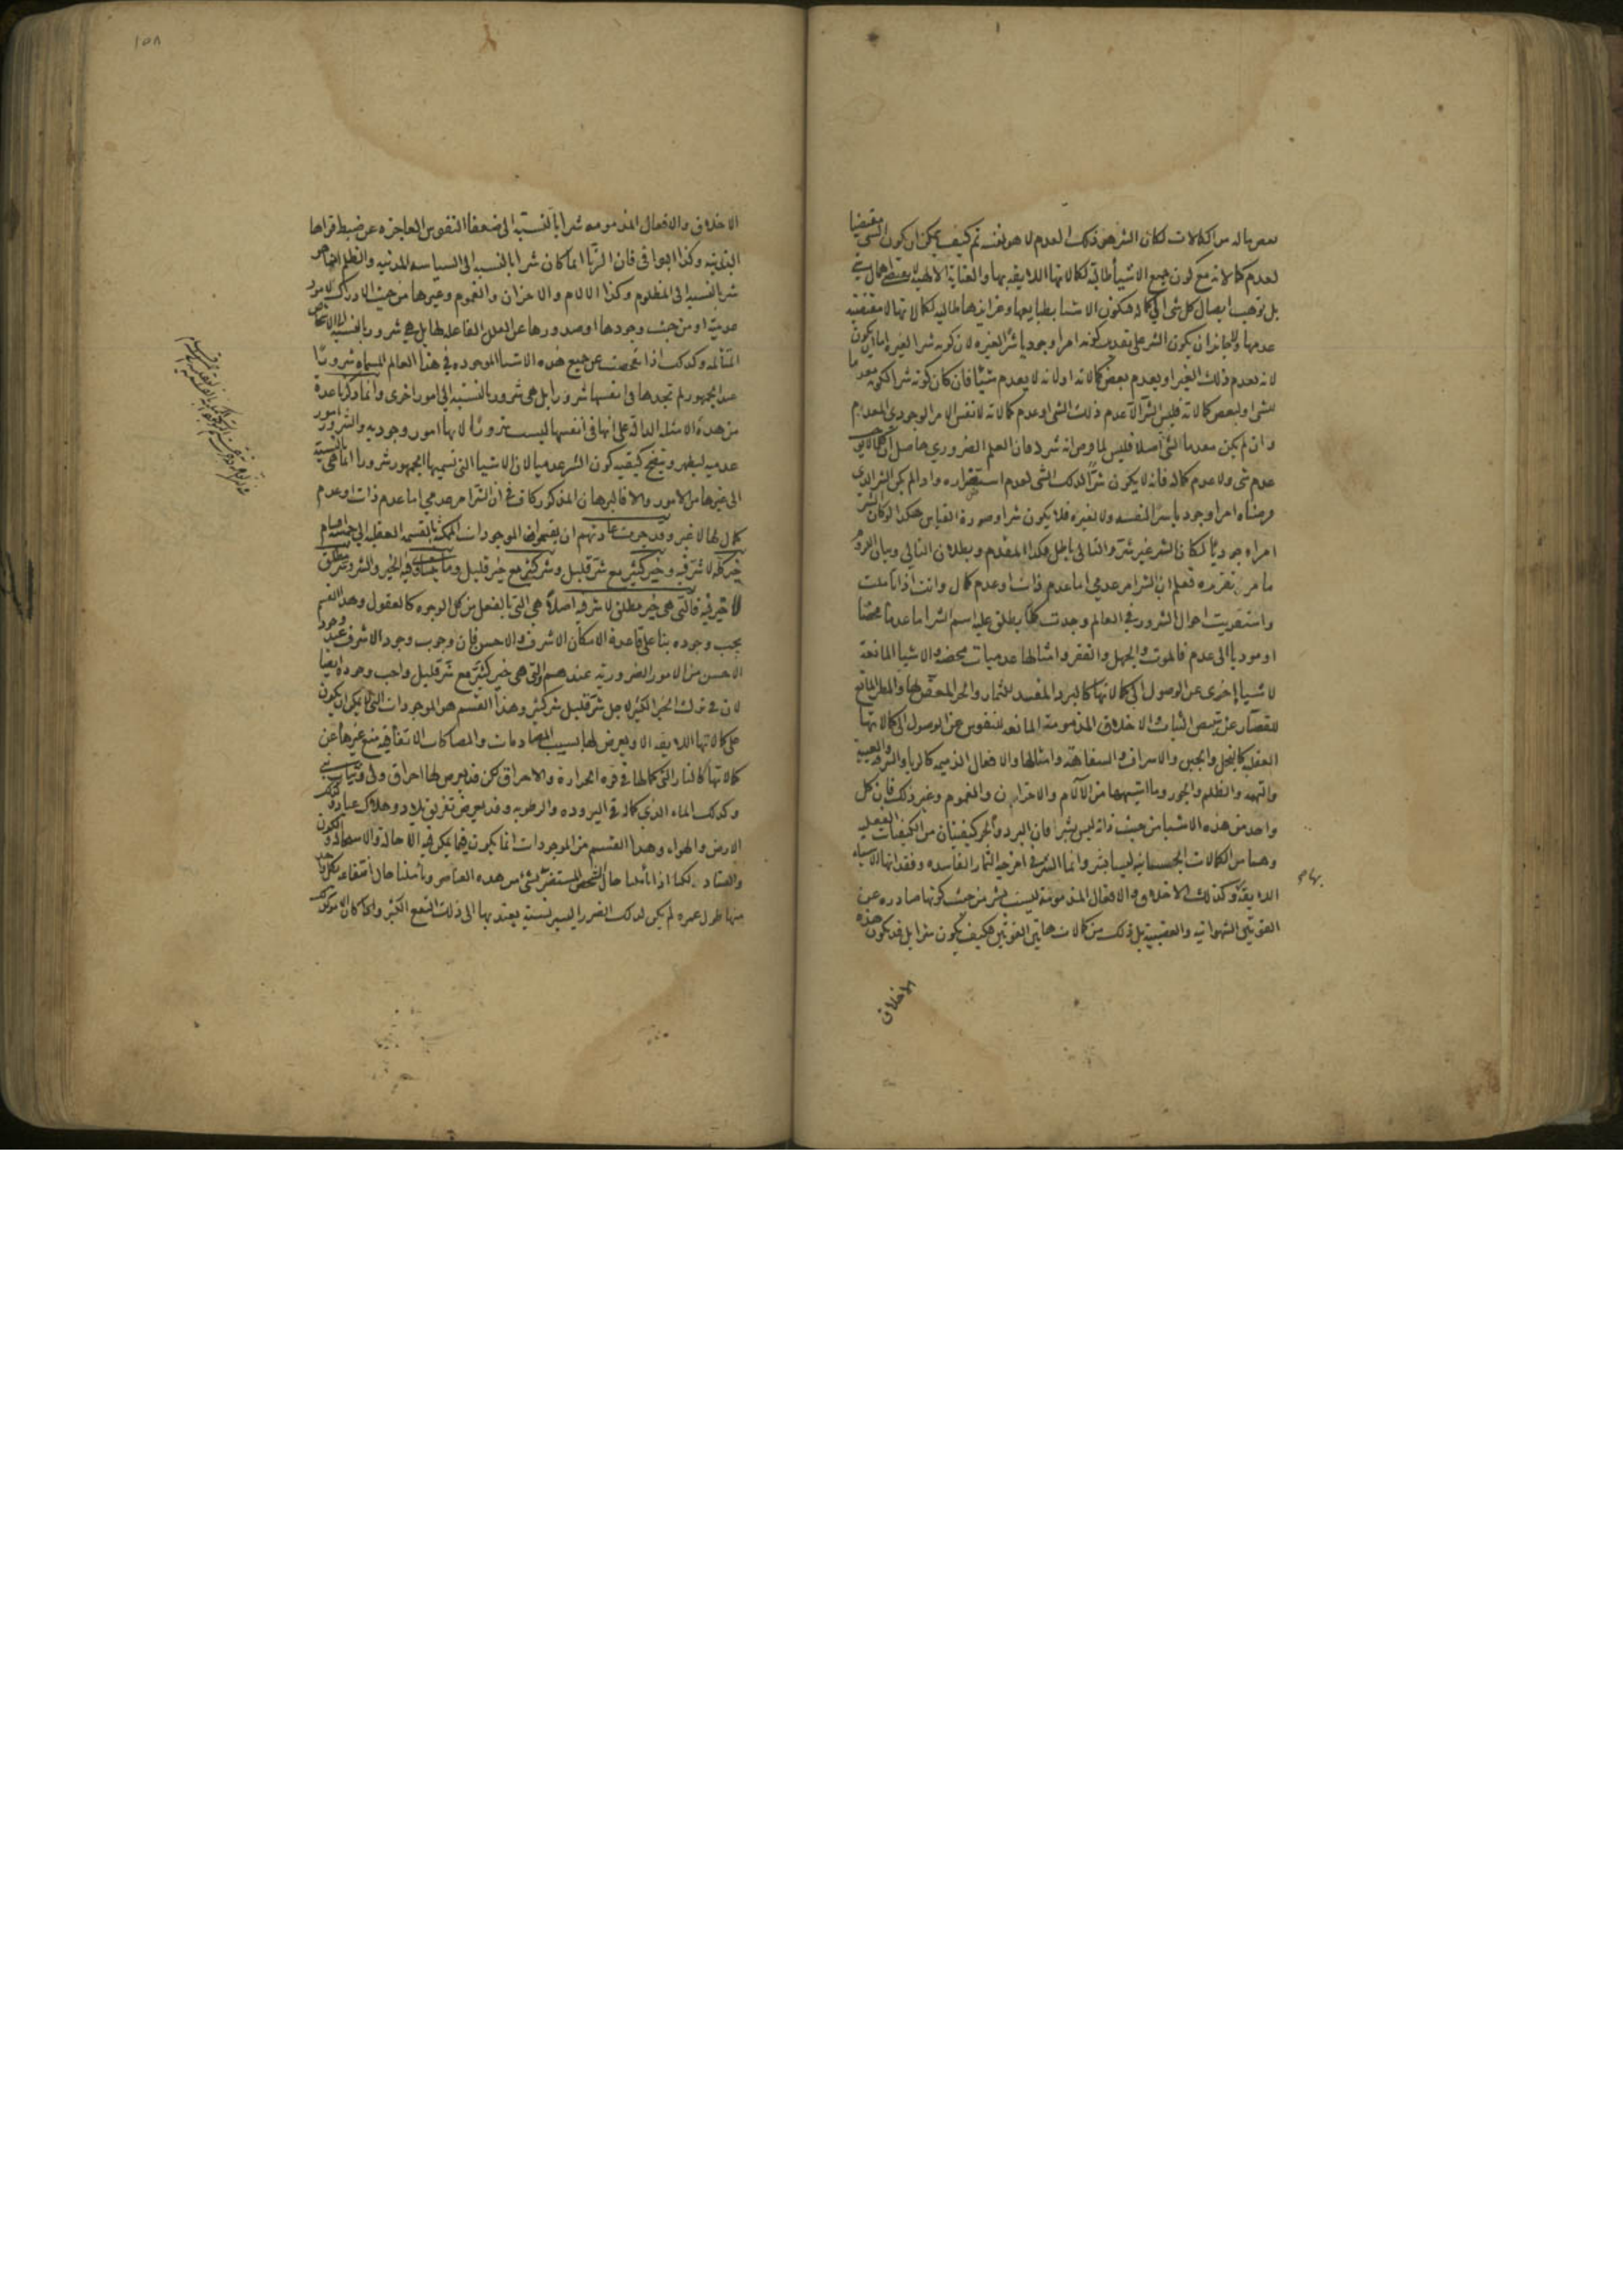 بعض ماله من الكمالات لكان الشر هو ذلك العدم لا هو نفسه ثم كيف يمكن ان يكون الشى مقتضيا
لعدم كمالاته مع كون جميع الاشيأ طالبة لكمالاتها اللايقة بها والعناية الالهية لا
بل توجب ايصال كل شى الى كماله فيكون الاشيا بطبايعها وغرايزها طالبة لكمالاتها لا مقتضية
عدمها ولا جايز ان يكون الشر على تقدير كونه امرا وجوديا شرا لغيره لان كونه شرا لغيره اما ان يكون
لانه يعدم ذلك الغير او يعدم بعض كمالاته او لانه لا يعدم شيئا فان كان كونه شرا لكونه معدما
للشى او لبعض كمالاته فليس الشر الا عدم ذلك الشى او عدم كمالاته لا نفس الامر الوجودي المعدم
وان لم يكن معدما لشى اصلا فليس لما فرض انه شر فان العلم الضروري حاصل ان كل ما لا يوجب
عدم شى ولا عدم كماله فانه لا يكون شرًّا لذلك الشى لعدم استضراره واذا لم يكن الشر الذى
فرضناه امرا وجوديا شرًّا لنفسه ولا لغيره فلا يكون شرا وصورة القياس هكذا لو كان الشر
امرا وجوديًّا لكان الشر غير شر والتالى باطل فكذا المقدم وبطلان التالي وبيان اللزوم
ما مر تقريره فعلم ان الشر امر عدمي اما عدم ذات او عدم كمال وانت اذا تاملت
واستقريت احوال الشرور في العالم وجدت كلما يطلق عليه اسم الشر اما عدمًا محضًا
او موديا الى عدم فالموت والجهل والفقر وامثالها عدميات محضة والاشيا المانعة
لاشيا اخرى عن الوصول الى كمالاتها كالبرد المفسد للثمار والحر المعفن لها والمطر المانع
للقصّار عن تبييض الثياب والاخلاق المذمومة المانعة للنفوس عن الوصول الى كمالاتها
العقلية كالبخل والجبن والاسراف والسفاهة وامثالها والافعال الذميمة كالزنا والسرقة والغيبة
والنميمة والظلم والجور وما اشبهها من الآلام والاحزان والغموم وغير ذلك فان كل
واحد من هذه الاشيا من حيث ذاته ليس بشر فان البرد والحر كيفيتان من الكيفيات الفعلية
وهما من الكمالات الجسمانية ليسا بشر وانما الشر في امزجة الثمار الفاسدة وفقدانها للاشياء
اللايقة وكذلك الاخلاق والافعال المذمومة ليست بشر من حيث كونها صادرة عن
القوتين الشهوانية والغضبية بل ذلك من كمالات هاتين القوتين فكيف يكون شرا بل قد يكون هذه
بها م
الاخلاق
١٥٨
الاخلاق والافعال المذمومة شرا بالنسبة الى ضعفا النفوس العاجزة عن ضبط قواها
البدنية وكذا البواقى فان الزنا انما كان شرا بالنسبة الى السياسة المدنية والظلم انما هو
شر بالنسبة الى المظلوم وكذا الالام والاحزان والغموم وغيرها من حيث الادراك لامور
عدمية او من حيث وجودها او صدورها عن العلل الفاعلة لها بل هى شرور بالنسبة الى الاشخاص
المتألمة وكذلك اذا تفحصت عن جميع هذه الاشيا الموجودة في هذا العالم المسماة شرورًا
عند الجمهور لم تجدها فى انفسها شرورا بل هى شرور بالنسبة الى امور اخرى وانما ذكرنا عدة
من هذه الامثلة الدالة على انها فى انفسها ليست شرورًا لانها امور وجودية والشرور امور
عدمية ليظهر ويتضح كيفية كون الشر عدميا لان الاشيا التى تسميها الجمهور شرورا انما هى بالنسبة
الى غيرها من الامور والا فالبرهان المذكور كاف في ان الشر امر عدمي اما عدم ذات او عدم
كمال لها لا غير وقد جرت عادتهم ان يقسموا الموجودات الممكنة بالقسمة العقلية الى خمسة اقسام
خير كله لا شر فيه وخير كثير مع شر قليل وشر كثير مع خير قليل وما يتساوى فيه الخير والشر وشر مطلق
لا خير فيه فالتى هى خير مطلق لا شر فيه اصلا هى التى بالفعل من كل الوجوه كالعقول وهذا القسم
يجب وجوده بنا على قاعدة الامكان الاشرف والاحسن فان وجوب وجود الاشرف عند وجود
الاحسن من الامور الضرورية عندهم والتى هى خير كثير مع شر قليل واجب وجوده ايضا
لان فى ترك الخير الكثير لاجل شر قليل شر كثير وهذا القسم هو الموجودات التى لا يمكن ان يكون
على كمالاتها اللايقة الا ويعرض لها بسبب المصادمات والمصاكات الاتفاقية منع غيرها عن
كمالاتها كالنار التى كمالها فى قوة الحرارة والاحراق لكن قد يعرض لها احراق ولى وثياب نبى
وكذلك الماء الذى كماله فى البرودة والرطوبة وقد يعرض تغريق بلاد وهلاك عباد وكذلك
الارض والهواء وهذا القسم من الموجودات انما يكون فيما يمكن فيه الاحالة والاستحالة والكون
والفساد لكنا اذا تأملنا حال الشخص المستضر بشى من هذه العناصر وتأملنا حال انتفاعه بكل واحد
منها طول عمره لم يكن لذلك الضرر اليسير نسبة يعتد بها الى ذلك النفع الكثير واذا كان الامر كذلك